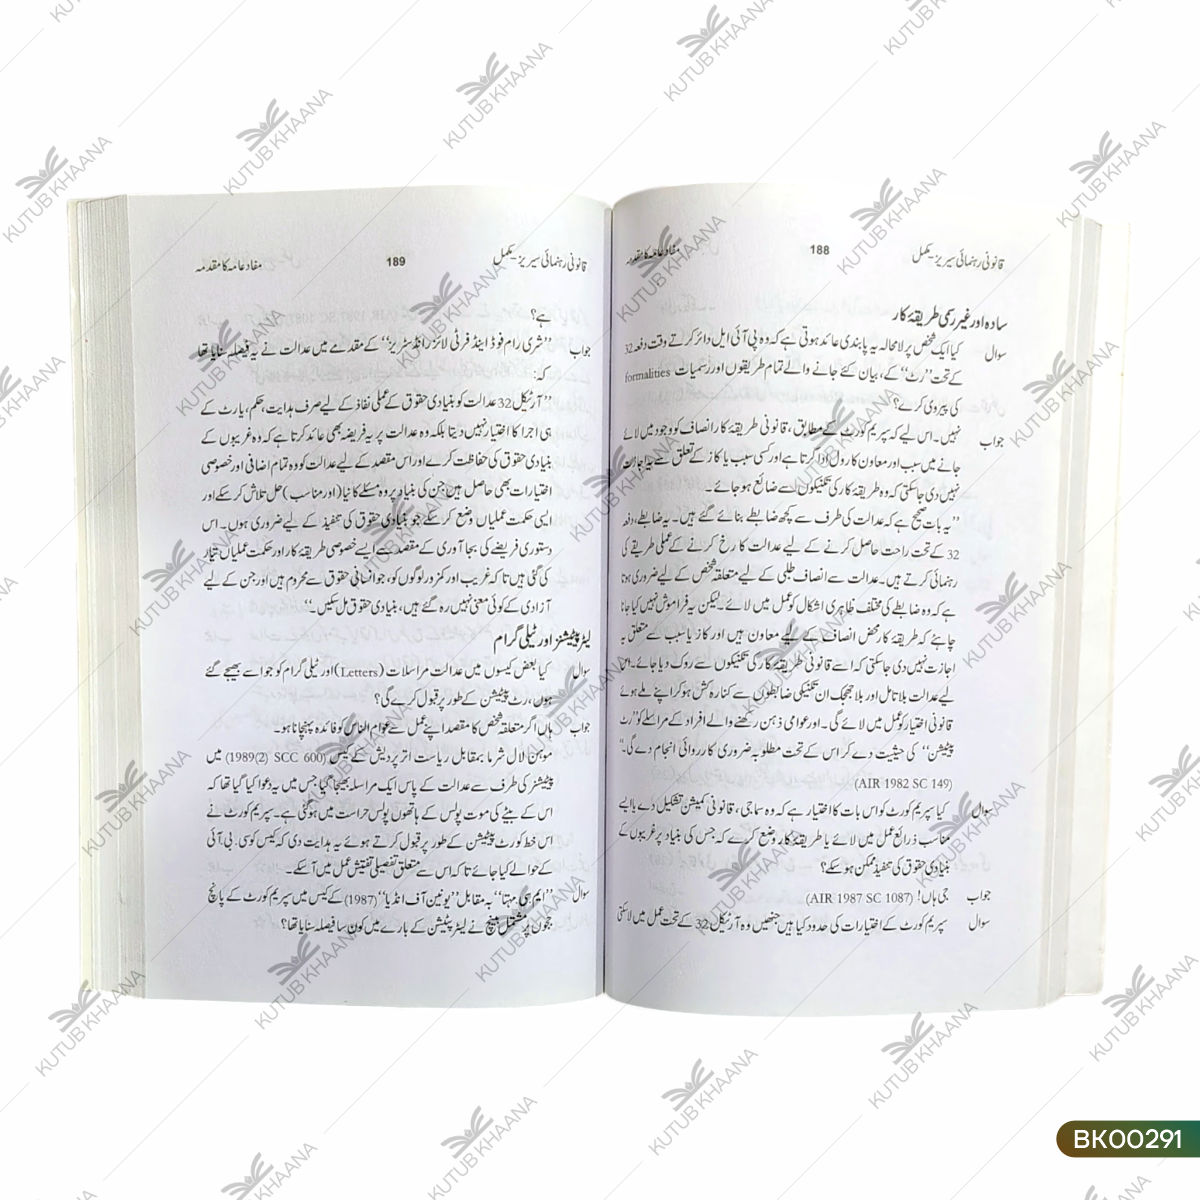 قانونی رہنمائی سیریز مکمل 188 مفاد عامہ کا مقدمہ
سادہ اور غیر رسمی طریقۂ کار
سوال کیا ایک شخص پر لامحالہ یہ پابندی عائد ہوتی ہے کہ وہ پی آئی ایل دائر کرتے وقت دفعہ 32
کے تحت ’’رٹ‘‘ کے، بیان کئے جانے والے تمام طریقوں اور رسمیات formalities
کی پیروی کرے؟
جواب نہیں۔ اس لیے کہ سپریم کورٹ کے مطابق، قانونی طریقۂ کار انصاف کو وجود میں لائے
جانے میں سبب اور معاون کا رول ادا کرتا ہے اور کسی سبب یا کاز کے تعلق سے یہ اجازت
نہیں دی جاسکتی کہ وہ طریقۂ کار کی تکنیکوں سے ضائع ہو جائے۔
’’یہ بات صحیح ہے کہ عدالت کی طرف سے کچھ ضابطے بنائے گئے ہیں۔ یہ ضابطے، دفعہ
32 کے تحت راحت حاصل کرنے کے لیے عدالت کا رخ کرنے کے عملی طریقے کی
رہنمائی کرتے ہیں۔ عدالت سے انصاف طلبی کے لیے متعلقہ شخص کے لیے ضروری ہوتا
ہے کہ وہ ضابطے کی مختلف ظاہری اشکال کو عمل میں لائے۔ لیکن یہ فراموش نہیں کیا جانا
چاہئے کہ طریقۂ کار محض انصاف کے لیے معاون ہیں اور کاز یا سبب کے متعلق یہ
اجازت نہیں دی جاسکتی کہ اسے قانونی طریقۂ کار کی تکنیکوں سے روک دیا جائے۔ اس
لیے عدالت بلا تامل اور بلا جھجک ان تکنیکی ضابطوں سے کنارہ کش ہو کر اپنے ملے ہوئے
قانونی اختیار کو عمل میں لائے گی۔ اور عوامی ذہن رکھنے والے افراد کے مراسلے کو ’’رٹ
پیٹیشن‘‘ کی حیثیت دے کر اس کے تحت مطلوبہ ضروری کارروائی انجام دے گی۔‘‘
(AIR 1982 SC 149)
سوال کیا سپریم کورٹ کو اس بات کا اختیار ہے کہ وہ سماجی، قانونی کمیشن تشکیل دے یا ایسے
مناسب ذرائع عمل میں لائے یا طریقۂ کار وضع کرے کہ جس کی بنیاد پر غریبوں کے
بنیادی حقوق کی تنفیذ ممکن ہوسکے؟
جواب جی ہاں! (AIR 1987 SC 1087)
سوال سپریم کورٹ کے اختیارات کی حدود کیا ہیں جنھیں وہ آرٹیکل 32 کے تحت عمل میں لاسکتی
قانونی رہنمائی سیریز مکمل 189 مفاد عامہ کا مقدمہ
ہے؟
جواب ’’شری رام فوڈ اینڈ فرٹی لائزر انڈسٹریز‘‘ کے مقدمے میں عدالت نے یہ فیصلہ سنایا تھا
کہ:
’’آرٹیکل 32 عدالت کو بنیادی حقوق کے عملی نفاذ کے لیے صرف ہدایت، حکم، یا رٹ کے
ہی اجرا کا اختیار نہیں دیتا بلکہ وہ عدالت پر یہ فریضہ بھی عائد کرتا ہے کہ وہ غریبوں کے
بنیادی حقوق کی حفاظت کرے اور اس مقصد کے لیے عدالت کو وہ تمام اضافی اور خصوصی
اختیارات بھی حاصل ہیں جن کی بنیاد پر وہ مسئلے کا نیا (اور مناسب) حل تلاش کرسکے اور
ایسی حکمت عملیاں وضع کرسکے جو بنیادی حقوق کی تنفیذ کے لیے ضروری ہوں۔ اس
دستوری فریضے کی بجا آوری کے مقصد سے ایسے خصوصی طریقۂ کار اور حکمت عملیاں تیار
کی گئی ہیں تاکہ غریب اور کمزور لوگوں کو، جو انسانی حقوق سے محروم ہیں اور جن کے لیے
آزادی کے کوئی معنی نہیں رہ گئے ہیں، بنیادی حقوق مل سکیں۔‘‘
لیٹر پیٹیشنز اور ٹیلی گرام
سوال کیا بعض کیسوں میں عدالت مراسلات (Letters) اور ٹیلی گرام کو جو اسے بھیجے گئے
ہوں، رٹ پیٹیشن کے طور پر قبول کرے گی؟
جواب ہاں اگر متعلقہ شخص کا مقصد اپنے عمل سے عوام الناس کو فائدہ پہنچانا ہو۔
موہن لال شرما بمقابل ریاست اتر پردیش کے کیس (1989(2) SCC 600) میں
پیٹیشنر کی طرف سے عدالت کے پاس ایک مراسلہ بھیجا گیا جس میں یہ دعوا کیا گیا تھا کہ
اس کے بیٹے کی موت پولس کے ہاتھوں پولس حراست میں ہوگئی ہے۔ سپریم کورٹ نے
اس خط کو رٹ پیٹیشن کے طور پر قبول کرتے ہوئے یہ ہدایت دی کہ کیس کو سی۔بی۔آئی
کے حوالے کیا جائے تاکہ اس سے متعلق تفصیلی تفتیش عمل میں آسکے۔
سوال ’’ایم سی مہتا‘‘ بہ مقابل ’’یونین آف انڈیا‘‘ (1987) کے کیس میں سپریم کورٹ کے پانچ
ججوں پر مشتمل بینچ نے لیٹر پٹیشن کے بارے میں کون سا فیصلہ سنایا تھا؟
KUTUB KHAANA
BK00291